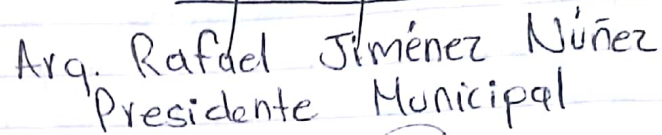 Arq. Rafael Jiménez Núñez
Presidente Municipal